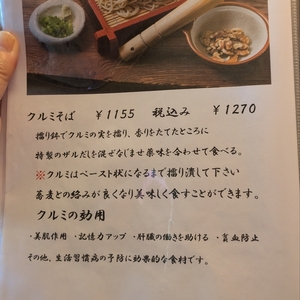 クルミそば ￥1155 税込み ￥1270
擂り鉢でクルミの実を擂り、香りをたてたところに
特製のザルだしを混ぜなじませ薬味を合わせて食べる。
※クルミはペースト状になるまで擂り潰して下さい
蕎麦との絡みが良くなり美味しく食すことができます。
クルミの効用
・美肌作用 ・記憶力アップ ・肝臓の働きを助ける ・貧血防止
その他、生活習慣病の予防に効果的な食材です。